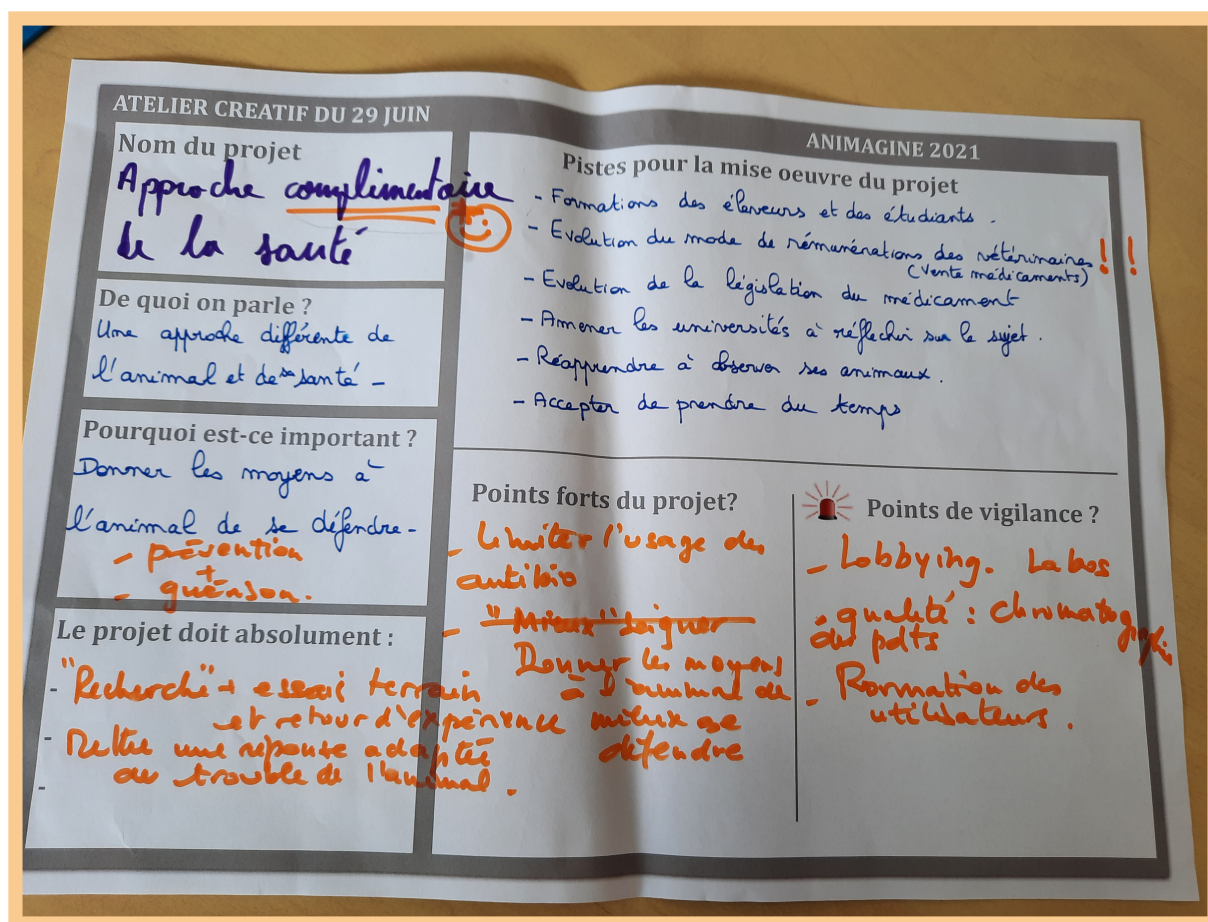 ATELIER CREATIF DU 29 JUIN
ANIMAGINE 2021
Nom du projet
Approche complimentaire
de la santé
De quoi on parle ?
Une approche différente de
l'animal et de sa santé -
Pourquoi est-ce important ?
Donner les moyens à
l'animal de se défendre -
- prévention
+
- guérison.
Le projet doit absolument :
- "Recherche" + essai terrain
et retour d'expérience
- Mettre une réponse adaptée
au trouble de l'animal.
-
Pistes pour la mise oeuvre du projet
- Formations des éleveurs et des étudiants.
- Evolution du mode de rémunérations des vétérinaires !!
(vente médicaments)
- Evolution de la législation du médicament
- Amener les universités à réflechir sur le sujet.
- Réapprendre à observer ses animaux.
- Accepter de prendre du temps
Points forts du projet?
- Limiter l'usage des
antibio
- "Mieux" soigner
Donner les moyens
à l'animal de
mieux se
défendre
Points de vigilance ?
- Lobbying. Labos
- qualité : chromatographie
des pdts
- Formation des
utilisateurs.